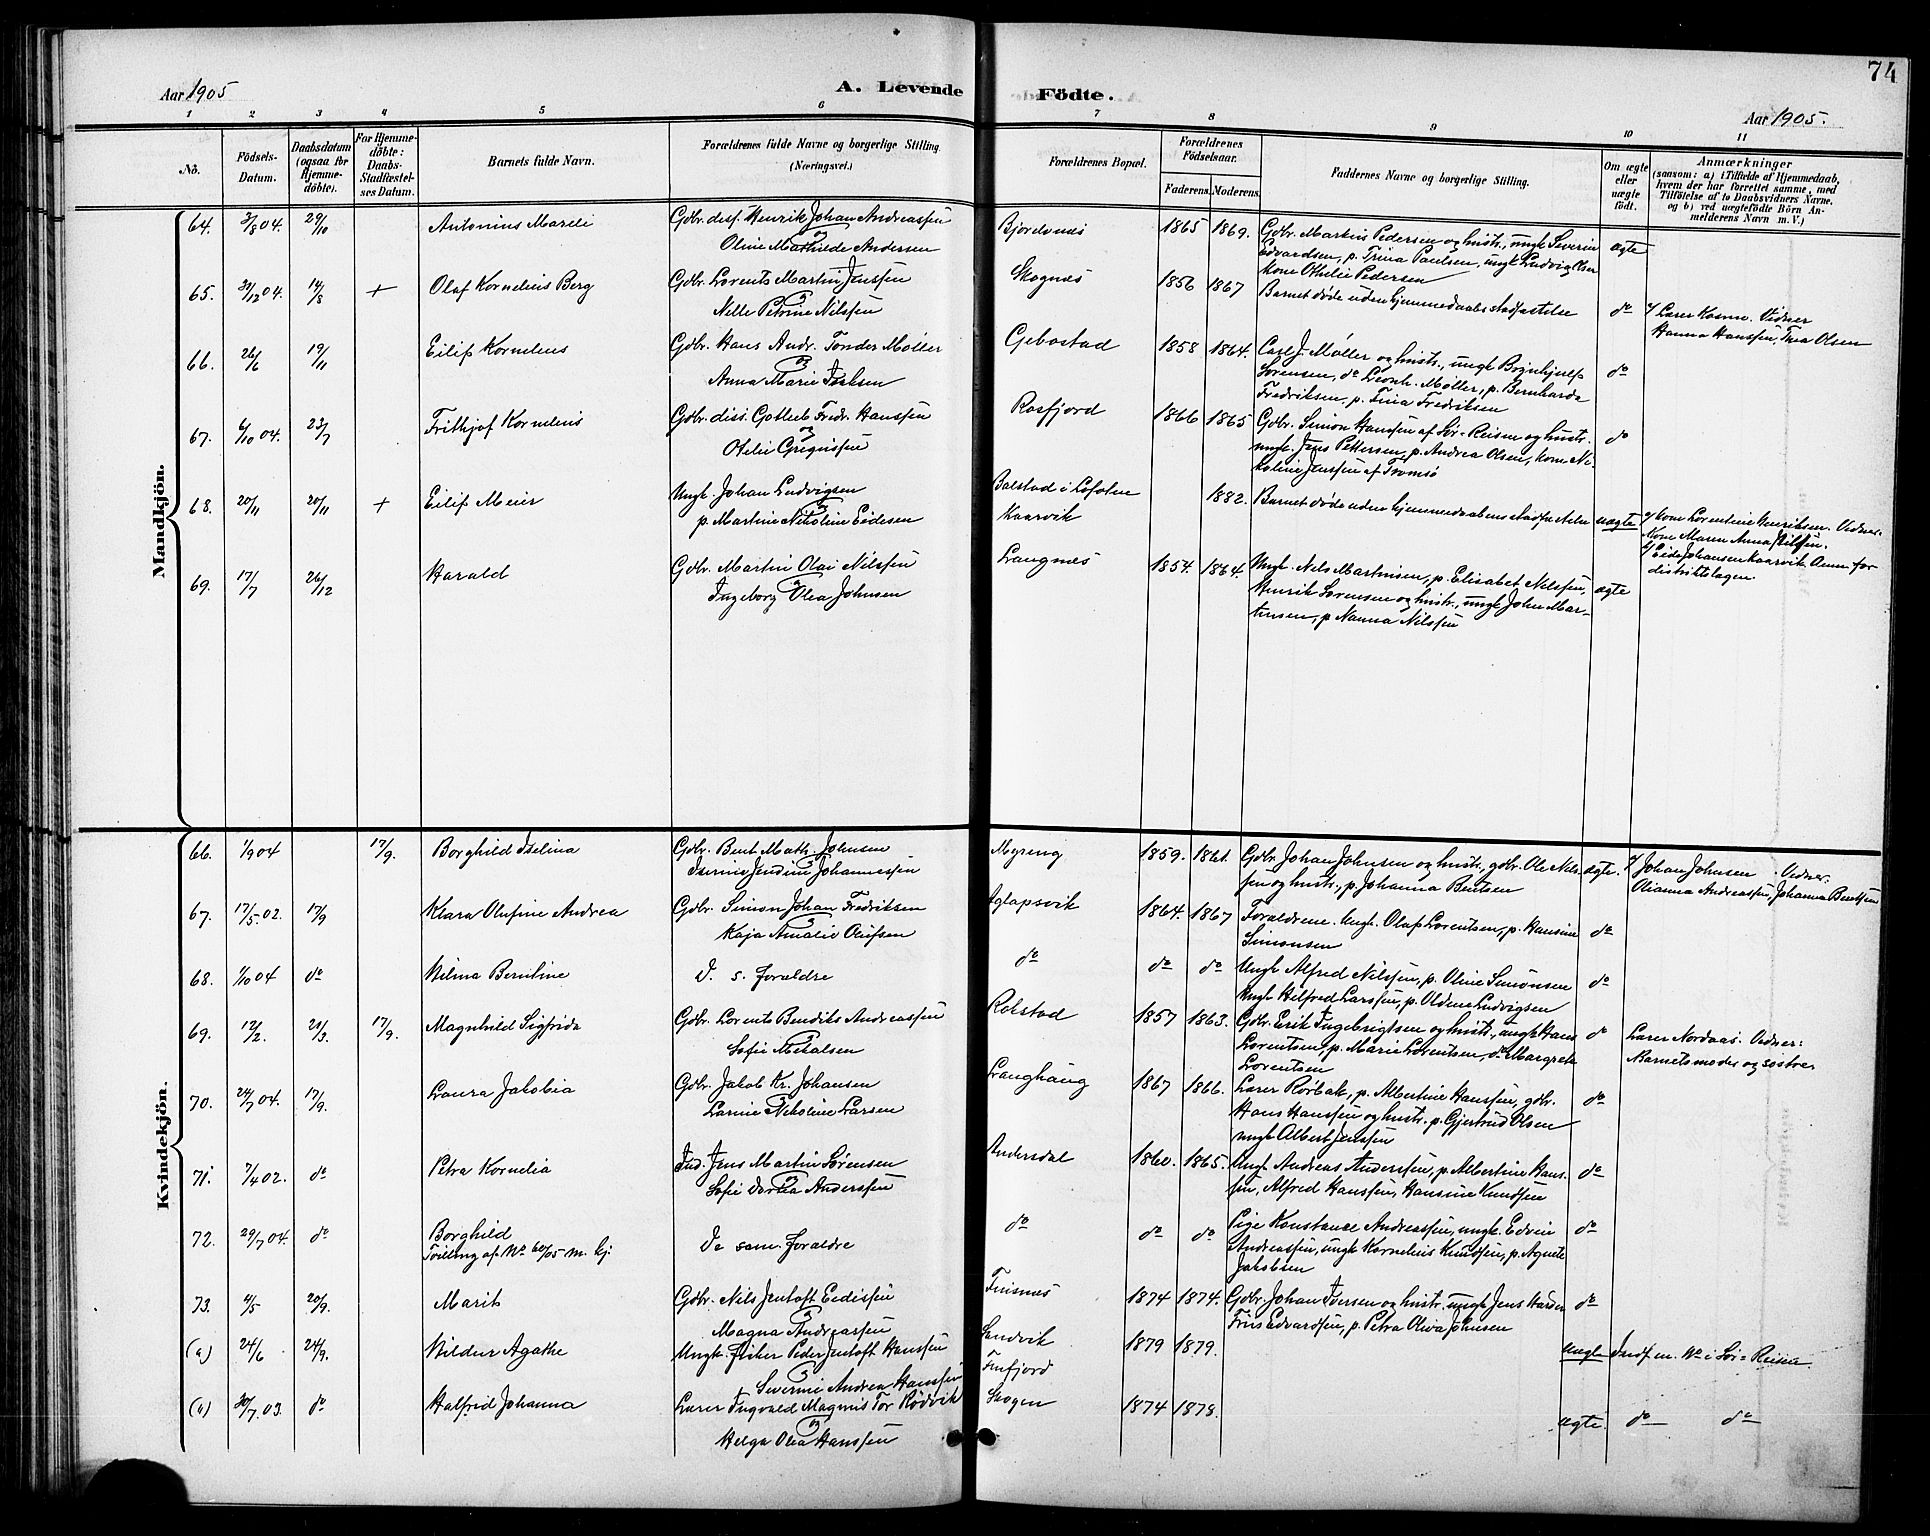 74
Aar 1905
A. Levende
Födte.
Aar 1905.
1 2 3 4 5 6 7 8 9 10 11
No.
Födsels-
Datum.
Daabsdatum
(ogsaa for
Hjemme-
døbte).
For Hjemme-
døbte:
Daabs-
Stadfæstel-
ses Datum.
Barnets fulde Navn.
Forældrenes fulde Navne og borgerlige Stilling.
(Næringsvei.)
Forældrenes Bopæl.
Forældrenes
Födselsaar.
Faderens. Moderens.
Faddernes Navne og borgerlige Stilling.
Om ægte
eller
uægte
födt.
Anmærkninger
(saasom: a) i Tilfælde af Hjemmedaab,
hvem der har forrettet samme, med
Tilföielse af to Daabsvidners Navne,
og b) ved uægtefödte Börn An-
melderens Navn m. V.)
Mandkjön.
64. 3/8 04. 29/10 Antonius Mareli Gdbr. diss. Henrik Johan Andreassen
og
Oline Mathilde Andersen
Bjordvnes 1865 1869. Gdbr. Markus Pedersen og hustr., ungk Severin
Edvardsen, p. Trina Paulsen, ungk Ludvig Olsen
kone Othelie Pedersen
ægte
65. 31/12 04. 14/8 + Olaf Kornelius Berg Gdbr. Lorents Martin Jenssen
og
Nelle Petrine Nilssen
Skognæs 1856 1867 Barnet døde uden hjemmedaabs stadfæstelse do
v/ Lærer Kosmo. Vidner
Hanna Hanssen, Thea Olsen
66. 26/6 19/11 Eilif Kornelius Gdbr. Hans Andr. Tønder Møller
og
Anna Marie Isaksen
Gebostad 1858 1864. Carl J. Møller og hustr., ungk Brynhjulf
Sørensen, do Leonh. Møller, p. Bernharda
Fredriksen, p. Tina Fredriksen
do
67. 6/10 04. 23/7 Frithjof Kornelius Gdbr. diss. Gotlieb Fredr. Hanssen
og
Otelie Gregussen
Rossfjord 1866 1865 Gdbr. Simon Hanssen af Sør-Reisen og hustr.
ungk. Jens Pettersen, p. Andrea Olsen, kone Ni-
koline Jenssen af Tromsø
do
68. 20/11 20/11 + Eilif Meier Ungk. Johan Ludvigsen
og
p. Martine Nikoline Eidesen
Balstad i Lofoten
Kaarvik
1882. Barnet døde uden hjemmedaabens stadfæstelse uægte
v/ kone Lorentine Henriksen. Vidner:
Kone Maren Anna Nilsen.
v/ Eide Johansen Kaarvik Anm. for
distriktslægen
69. 17/7 26/12 Harald Gdbr. Martin Olai Nilssen
og
Ingeborg Olea Johnsen
Langnæs 1854. 1864. Ungk. Nels Martinsen, p. Elisabet Nilssen,
Henrik Sørensen og hustr., ungk John Mar-
tinsen, p. Nanna Nilssen
ægte
Kvindekjön.
66. 1/9 04 17/9. Borghild Iselina Gdbr. Bent Math. Johnsen
og
Iserine Jendine Johannessen
Myreng 1859. 1861. Gdbr. Johan Johnsen og hustr., gdbr. Ole Nils-
sen og hustr., p. Johanna Bentsen
ægte. v/ Johan Johnsen. Vidner.
Olianna Andreassen, Johanna Bentsen
67. 17/5. 02. 17/9 Klara Olufine Andrea Gdbr. Simon Johan Fredriksen
og
Kaja Amalie Olufsen
Aglapsvik 1864. 1867 Forældrene. Ungk. Olaf Lorentsen, p. Hansine
Simonsen
do
68. 1/10 04 do Wilma Berntine D. s. forældre do do do Ungk Alfred Nilssen, p. Oline Simonsen
Ungk Hilfred Larssen, p. Oldene Ludvigsen
do
69. 12/2. 21/3. 17/9. Magnhild Sigfrida Gdbr. Lorents Bendiks Andreassen
og
Sofie Mikalsen
Rolstad 1857 1863. Gdbr. Erik Ingebrigtsen og hustr., ungk Hans
Lorentsen, p. Marie Lorentsen, do Margrete
Lorentsen
do Lærer Nordaas. Vidner:
Barnets moder og søstre
70. 24/7 04. 17/9. Laura Jakobia Gdbr. Jakob Kr. Johansen
og
Larine Nikoline Larsen
Langhaug 1867 1866. Lærer Rørbak, p. Albertine Hanssen, gdbr.
Hans Hanssen og hustr. p. Gjertrud Olsen
ungk Albert Jenssen
do
71. 7/4 02. do Petra Kornelia Ind. Jens Martin Sørensen
og
Sofie Dortea Anderssen
Andersdal 1860. 1865. Ungk. Andreas Anderssen, p. Albertine Hans-
sen, Alfred Hanssen, Hansine Knudsen
do
72. 29/7 04. do Borghild
Tvilling af No 60/05 m. kj.
De sam. forældre do do do Pige Konstance Andreassen, ungk. Edvin
Andreassen, ungk Kornelius Knudsen, p. Agnete
Jakobsen
do
73. 4/5 20/9. Marit Gdbr. Nils Jentoft Eedissen
og
Magna Andreassen
Finsnæs 1874 1874. Gdbr. Johan Iversen og hustr. ungk Jens Hansen
Friis Edvardsen, p. Petra Oliva Johnsen
do
(a) 24/6 24/9. Hildur Agathe Ungk. fisker Peder Jentoft Hanssen
og
Severine Andrea Hanssen
Sandvik
Finfjord
1879 1879. uægte Indf. m. No i Sør-Reisen
(a) 30/7. 03. do Halfrid Johanna Lærer Ingvald Magnus Tor Rødvik
og
Helga Olea Hanssen
Skogen 1874 1878. ægte do do